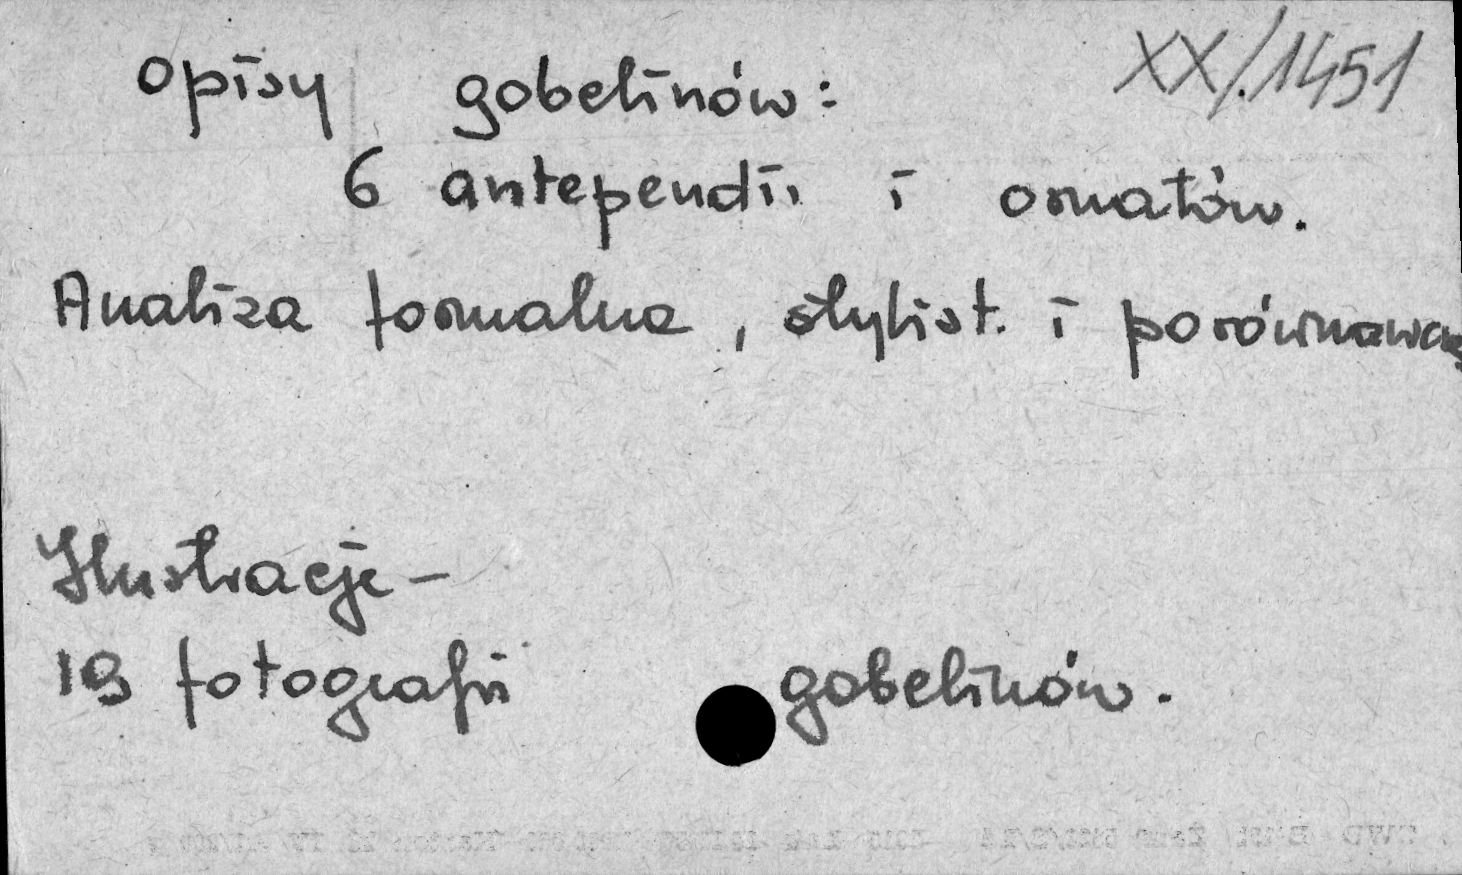 XX/.1451
opisy gobelinów:
6 antependii i ornatów.
Analiza formalna, stylist. i porównawcza
Ilustracje –
19 fotografii gobelinów.